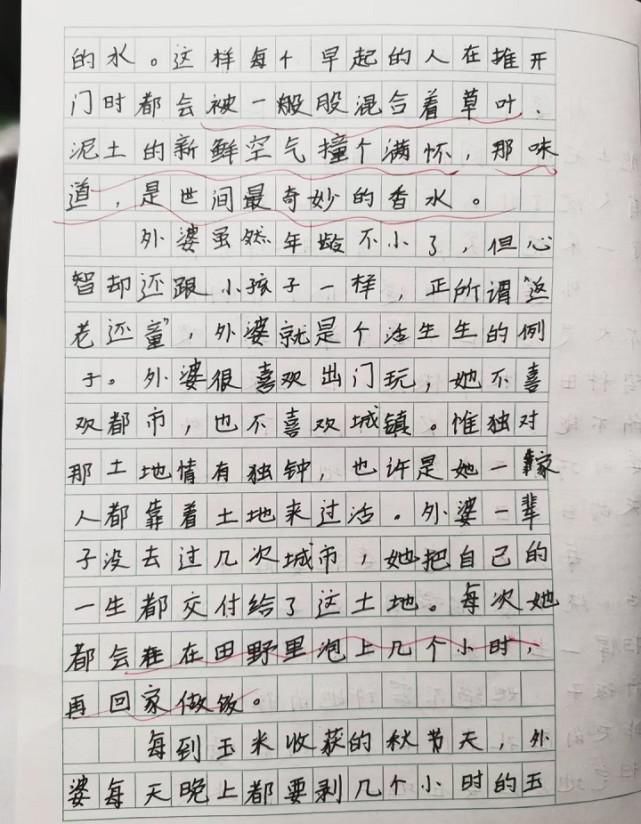 的水。这样每个早起的人在推开
门时都会被一般股混合着草叶、
泥土的新鲜空气撞个满怀，那味
道，是世间最奇妙的香水。
外婆虽然年龄不小了，但心
智却还跟小孩子一样，正所谓“返
老还童”，外婆就是个活生生的例
子。外婆很喜欢出门玩，她不喜
欢都市，也不喜欢城镇。惟独对
那土地情有独钟，也许是她一家
人都靠着土地来过活。外婆一辈
子没去过几次城市，她把自己的
一生都交付给了这土地。每次她
都会在田野里泡上几个小时，
再回家做饭。
每到玉米收获的秋节天，外
婆每天晚上都要剥几个小时的玉